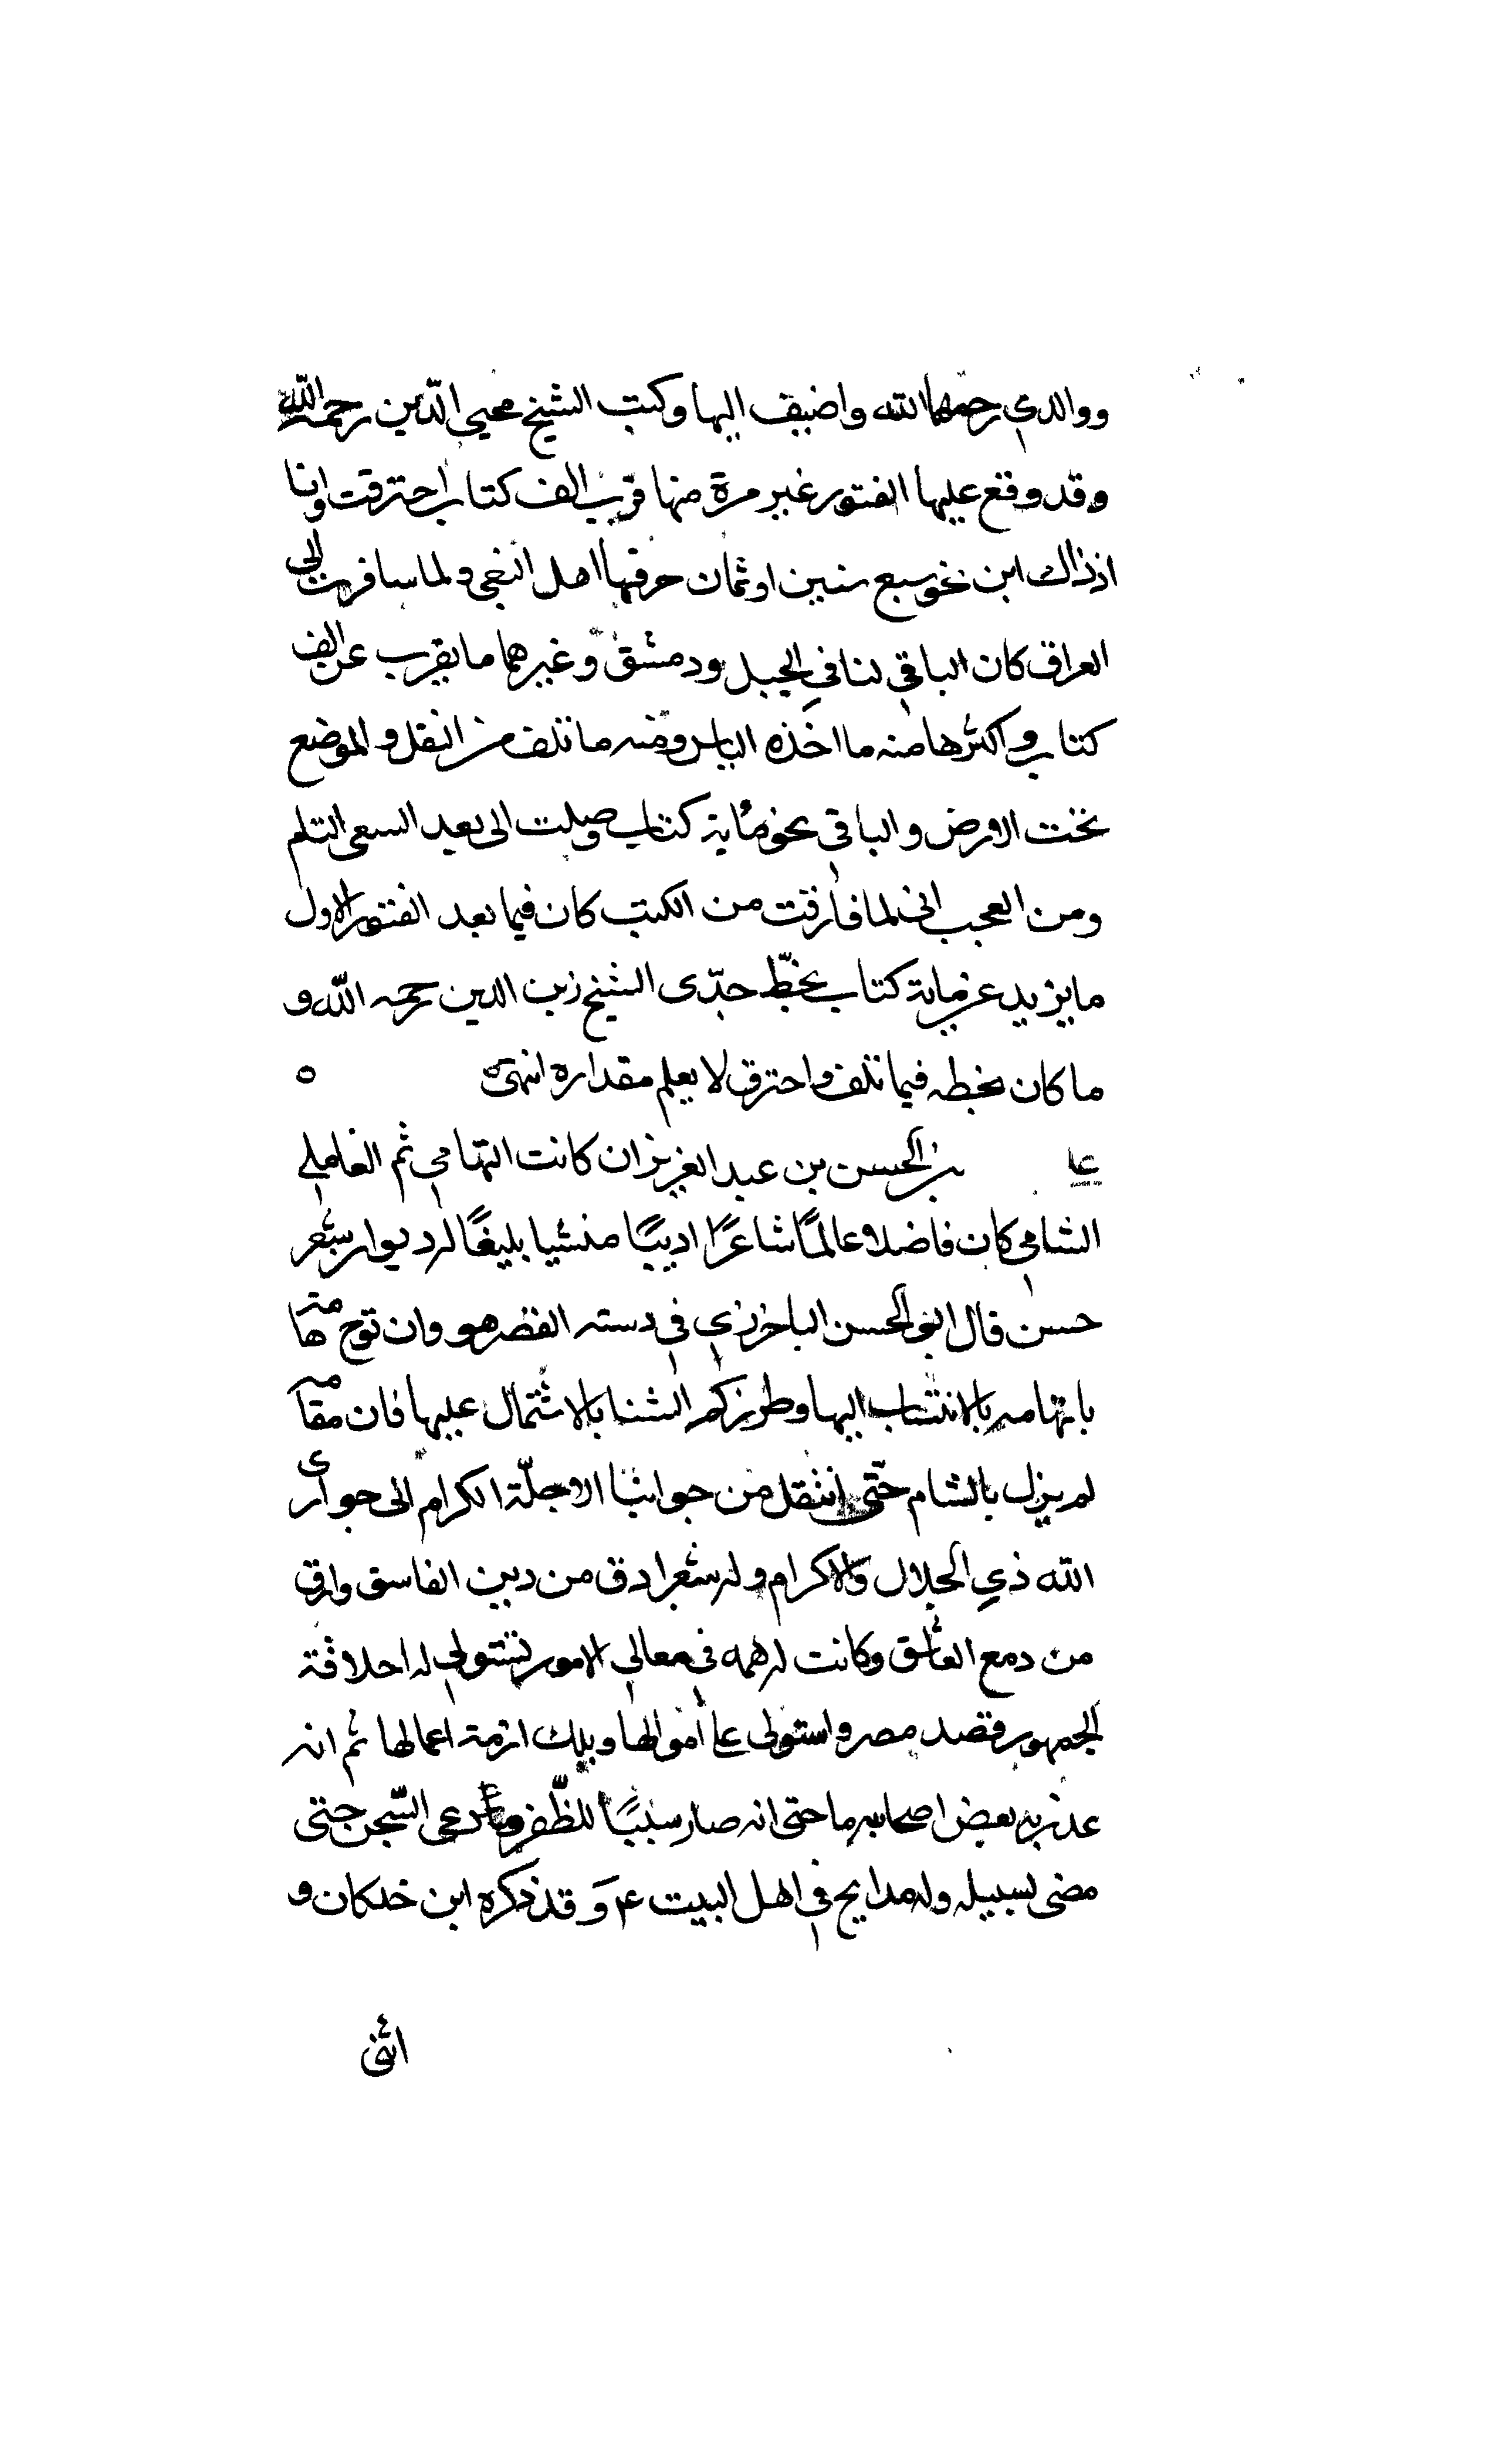 ووالدي رحمهما الله واضيف اليها وكتب الشيخ محيي الدّين رحمه الله
وقد وقع عليها الفتور غير مرة منها قرب الف كتاب احترقت وانا
اذ ذاك ابن نحو سبع سنين او ثمان حرقها اهل البغى ولما سافرت الى
العراق كان الباقي لنا في الجبل ودمشق وغيرهما ما يقرب عن الف
كتاب واكثرها منه ما اخذه الناس ومنه ما تلف من النقل والموضع
تحت الارض والباقي نحو مأية كتاب وصلت الى بعد السعى التلم
ومن العجب انى لما فارقت من الكتب كان فيما بعد الفتور الاول
ما يزيد عن ماية كتاب بخطّ جدّى الشيخ زين الدين رحمه الله و
ما كان بخطه فيما تلف واحترق لا يعلم مقداره انتهى ه
على بن الحسن بن عبد العزيز ان كانت التهامي ثم العاملي
الشامي كان فاضلا عالمًا شاعرًا اديبًا منشيا بليغًا له ديوان شعر
حسن قال ابو الحسن الباخرزي في دسته القصر هو وان توج هامته
بالتهامه بالانتساب اليها وطرز كم الشنا بالاشتمال عليها فان مقامه
لم يزل بالشام حتّى انتقل من جوابنا الاجلّة الكرام الى جوارى
الله ذي الجلال والاكرام وله شعر ادق من دين الفاسق وارق
من دمع العاشق وكانت له همه في معالي الامور تستولي له احلافة
الجمهور فقصد مصر واستولى على اموالها وبلك ازمة اعمالها ثم انه
عذر به بعض اصحابه ما حتى انه صار سببًا للظّفر السّجن حتى
مضى لسبيله وله مدايح في اهل البيت ع وقد ذكره ابن خلكان و
اثنى